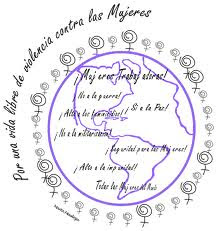 Por una vida libre de violencia contra las Mujeres
¡Mujeres Trabajadoras!
¡No a la guerra!
¡Si a la Paz!
¡Alto a los feminicidios!
¡No a la militarización!
¡Seguridad para las Mujeres!
¡Alto a la impunidad!
Todas las Mujeres del